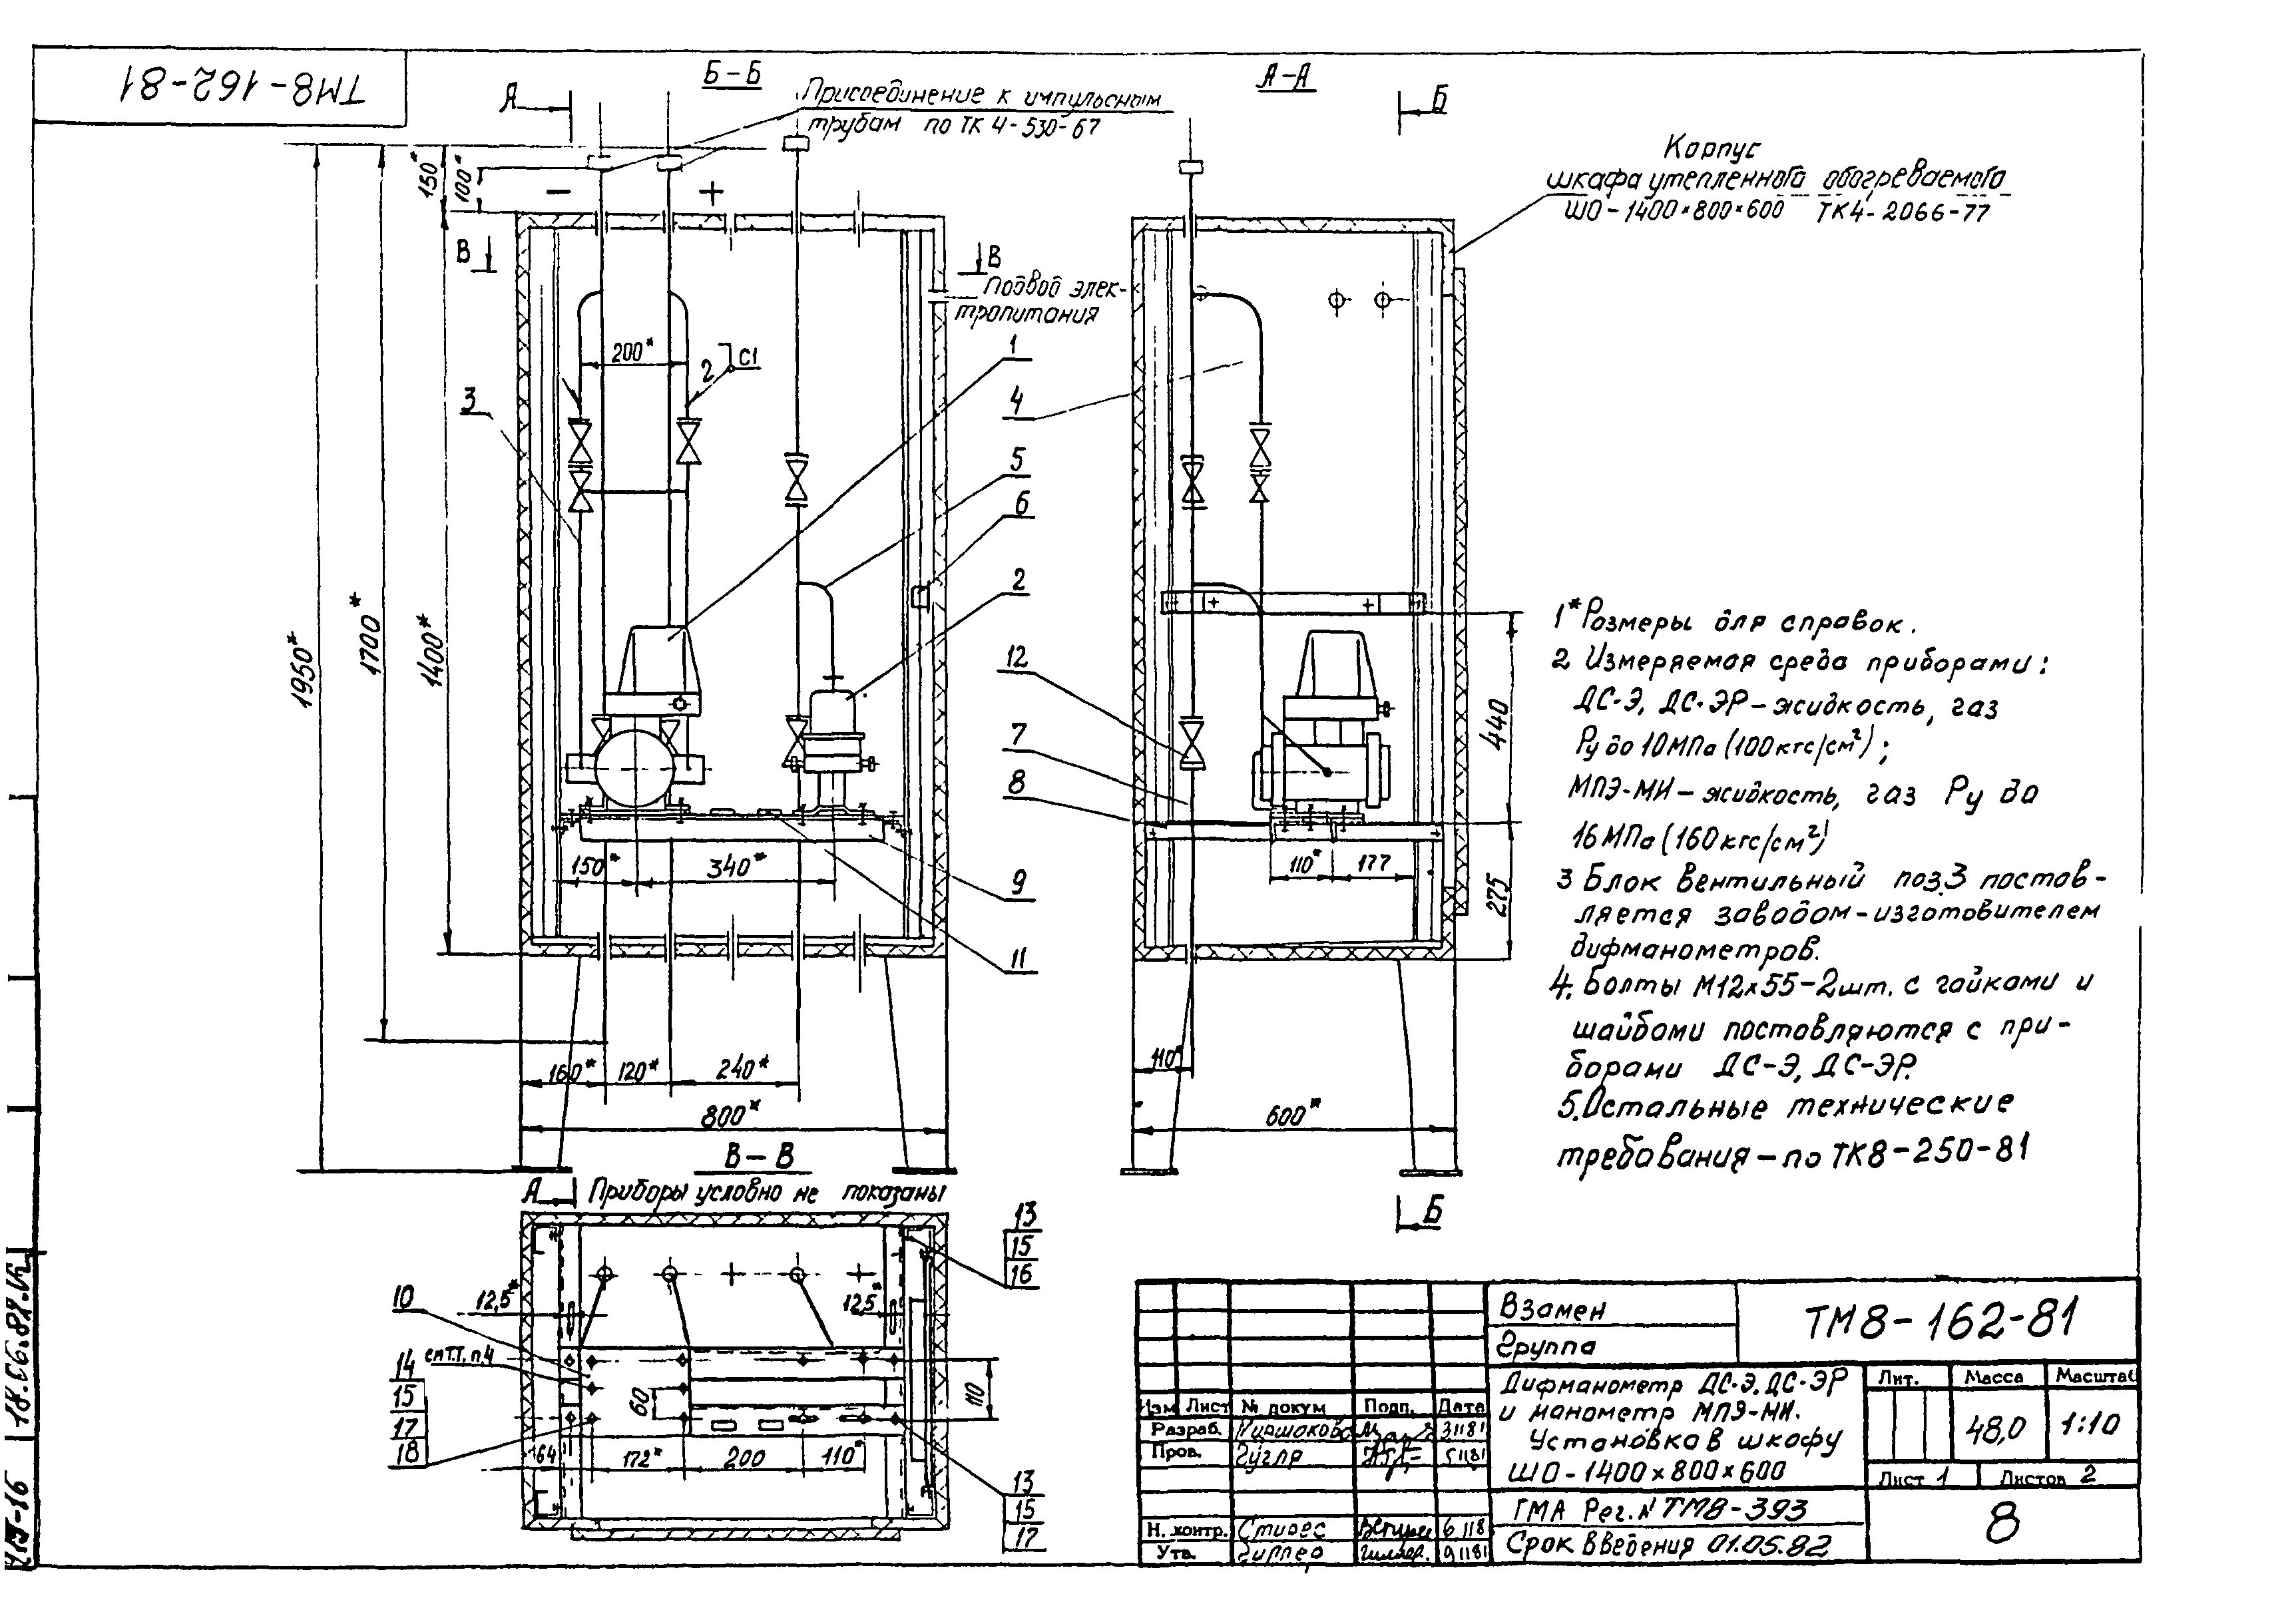 ТМ8-162-81
Б-Б
А
Присоединение к импульсным
трубам по ТК 4-530-67
А-А
Б
Корпус
шкафа утепленного обогреваемого
ШО-1400×800×600 ТК4-2066-77
150*
100*
−
+
В
В
Подвод элек-
тропитания
200*
2
С1
1
3
4
5
6
2
12
7
8
9
11
1950*
1700*
1400*
150*
340*
160*
120*
240*
800*
440
275
110*
177
110*
600*
1* Размеры для справок.
2 Измеряемая среда приборами:
ДС-Э, ДС-ЭР-жидкость, газ
Ру до 10МПа (100кгс/см²);
МПЭ-МИ-жидкость, газ Ру до
16МПа (160кгс/см²)
3 Блок вентильный поз.3 постав-
ляется заводом-изготовителем
дифманометров.
4. Болты М12х55-2шт. с гайками и
шайбами поставляются с при-
борами ДС-Э, ДС-ЭР.
5. Остальные технические
требования-по ТК8-250-81
В-В
А
Приборы условно не показаны
Б
13
15
16
10
12,5*
12,5*
14
см Т.Т. п.4
15
17
18
60
110
164
172*
200
110*
13
15
17
Взамен
Группа
ТМ8-162-81
Изм Лист № докум Подп. Дата
Разраб. 31181
Пров. Гуглр 51181
Н. контр. 6.118
Утв. 91181
Дифманометр ДС-Э, ДС-ЭР
и манометр МПЭ-МИ.
Установка в шкафу
ШО-1400х800х600
Лит. Масса Масштаб
48,0 1:10
Лист 1 Листов 2
ГМА Рег.N ТМ8-393
Срок введения 01.05.82
8
18.06.82